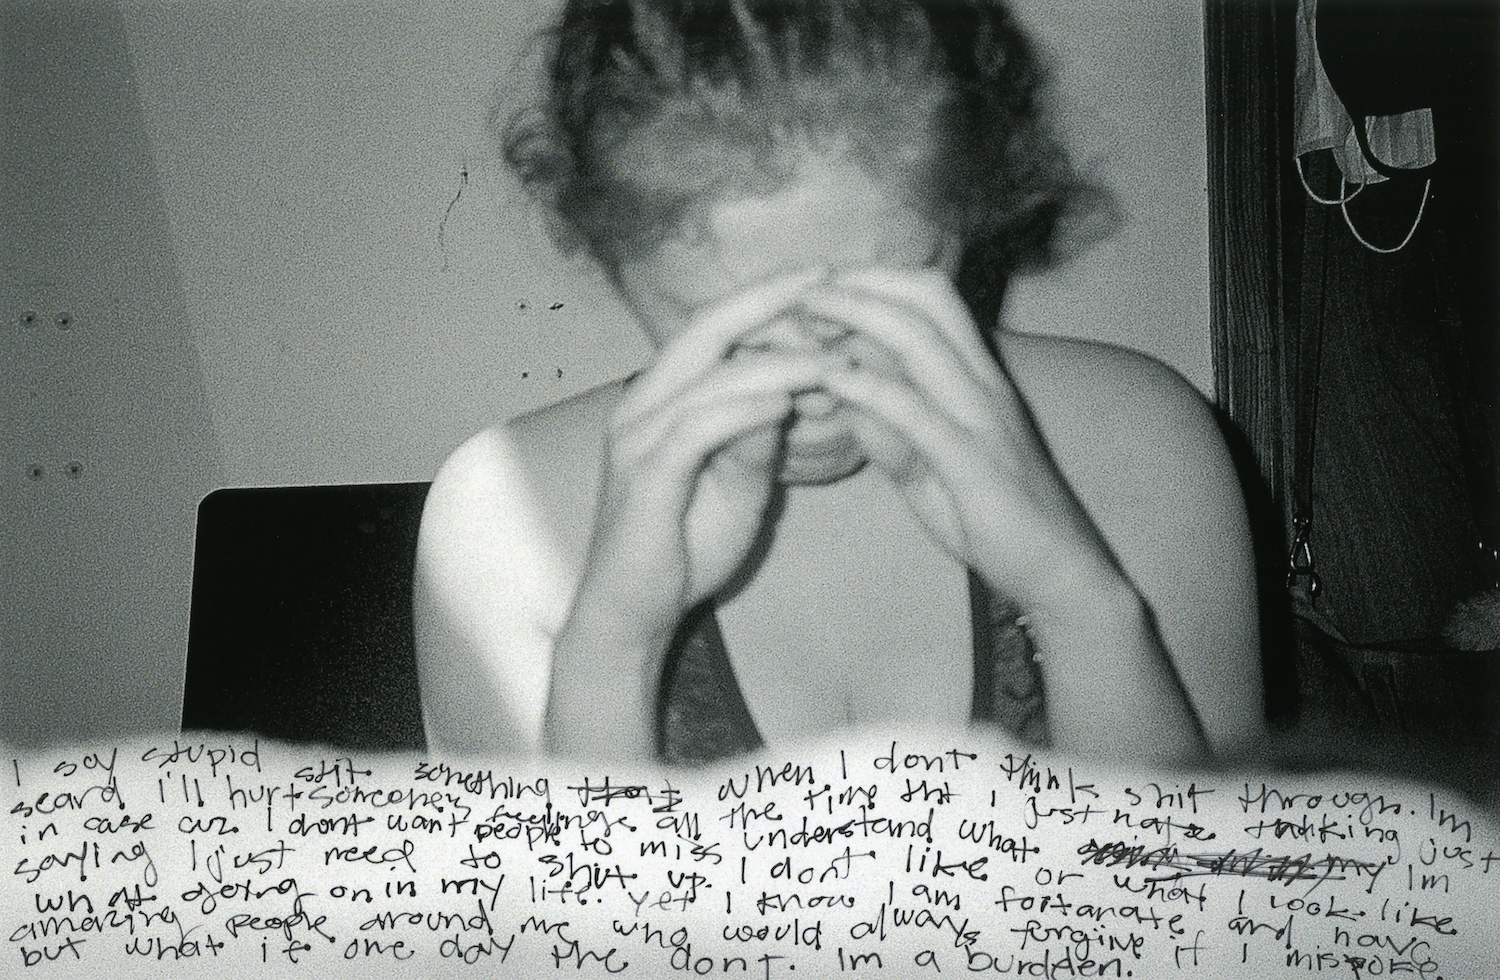 I say stupid shit something when I dont think shit through. Im
scard i'll hurt someones feelings all the time tht I just hate talking just
in case cuz I dont want people to miss understand what Im
saying I just need to shut up. I dont like or what I look like
whats going on in my life. yet I know I am fortanate and have
amazing people around me who would always forgive if I
but what if one day the dont. Im a burdden.